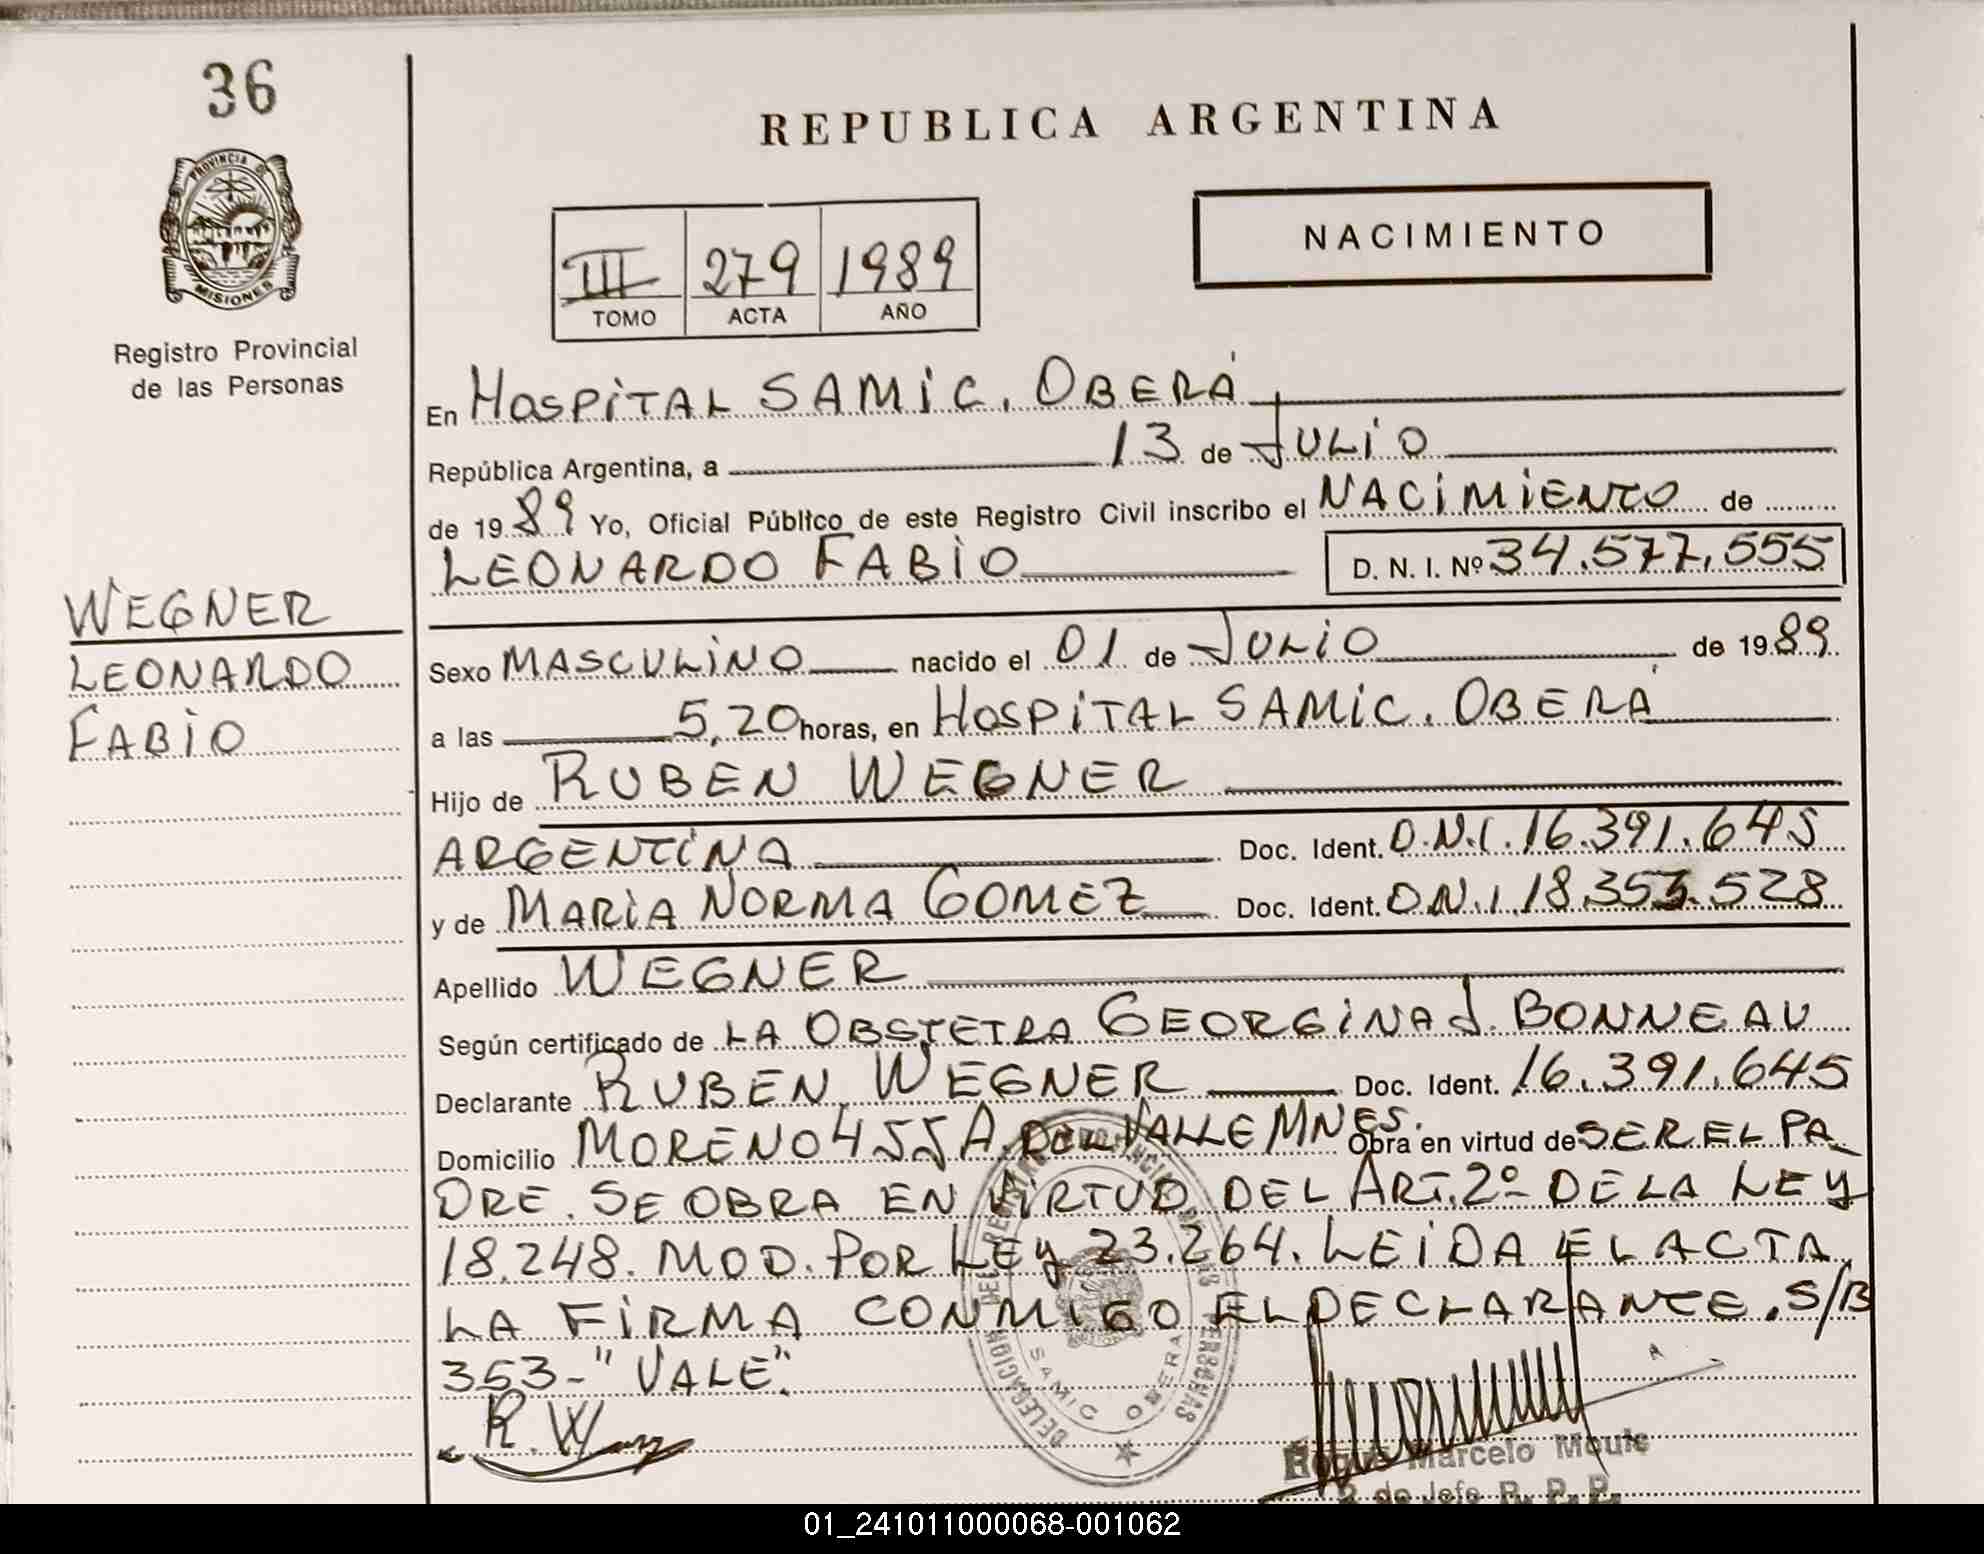 36
REPUBLICA ARGENTINA
PROVINCIA DE
MISIONES
Registro Provincial
de las Personas
NACIMIENTO
III 279 1989
TOMO ACTA AÑO
En HOSPITAL SAMIC. OBERÁ
República Argentina, a 13 de JULIO
de 1989 Yo, Oficial Público de este Registro Civil inscribo el NACIMIENTO de
LEONARDO FABIO D. N. I. Nº 34.577.555
WEGNER
LEONARDO
FABIO
Sexo MASCULINO nacido el 01 de JULIO de 1989
a las 5,20 horas, en HOSPITAL SAMIC. OBERÁ
Hijo de RUBEN WEGNER
ARGENTINA Doc. Ident. D.N.I. 16.391.645
y de MARIA NORMA GOMEZ Doc. Ident. D.N.I. 18.353.528
Apellido WEGNER
Según certificado de LA OBSTETRA GEORGINA J. BONNEAU
Declarante RUBEN WEGNER Doc. Ident. 16.391.645
Domicilio MORENO 455 A. DEL VALLE MNES. Obra en virtud de SER EL PA
DRE. SE OBRA EN VIRTUD DEL ART. 2º DE LA LEY
18.248. MOD. POR LEY 23.264. LEIDA EL ACTA
LA FIRMA CONMIGO EL DECLARANTE. S/B
353-"VALE".
DELEGACION DEL REGISTRO PROVINCIAL DE LAS PERSONAS
SAMIC OBERA
R. W
Marcelo
de Jefe R. P. P.
01_241011000068-001062